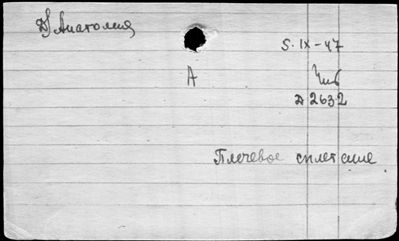 Анатомия
S. IX-47
А
Д 2632
Плечевое сплетение